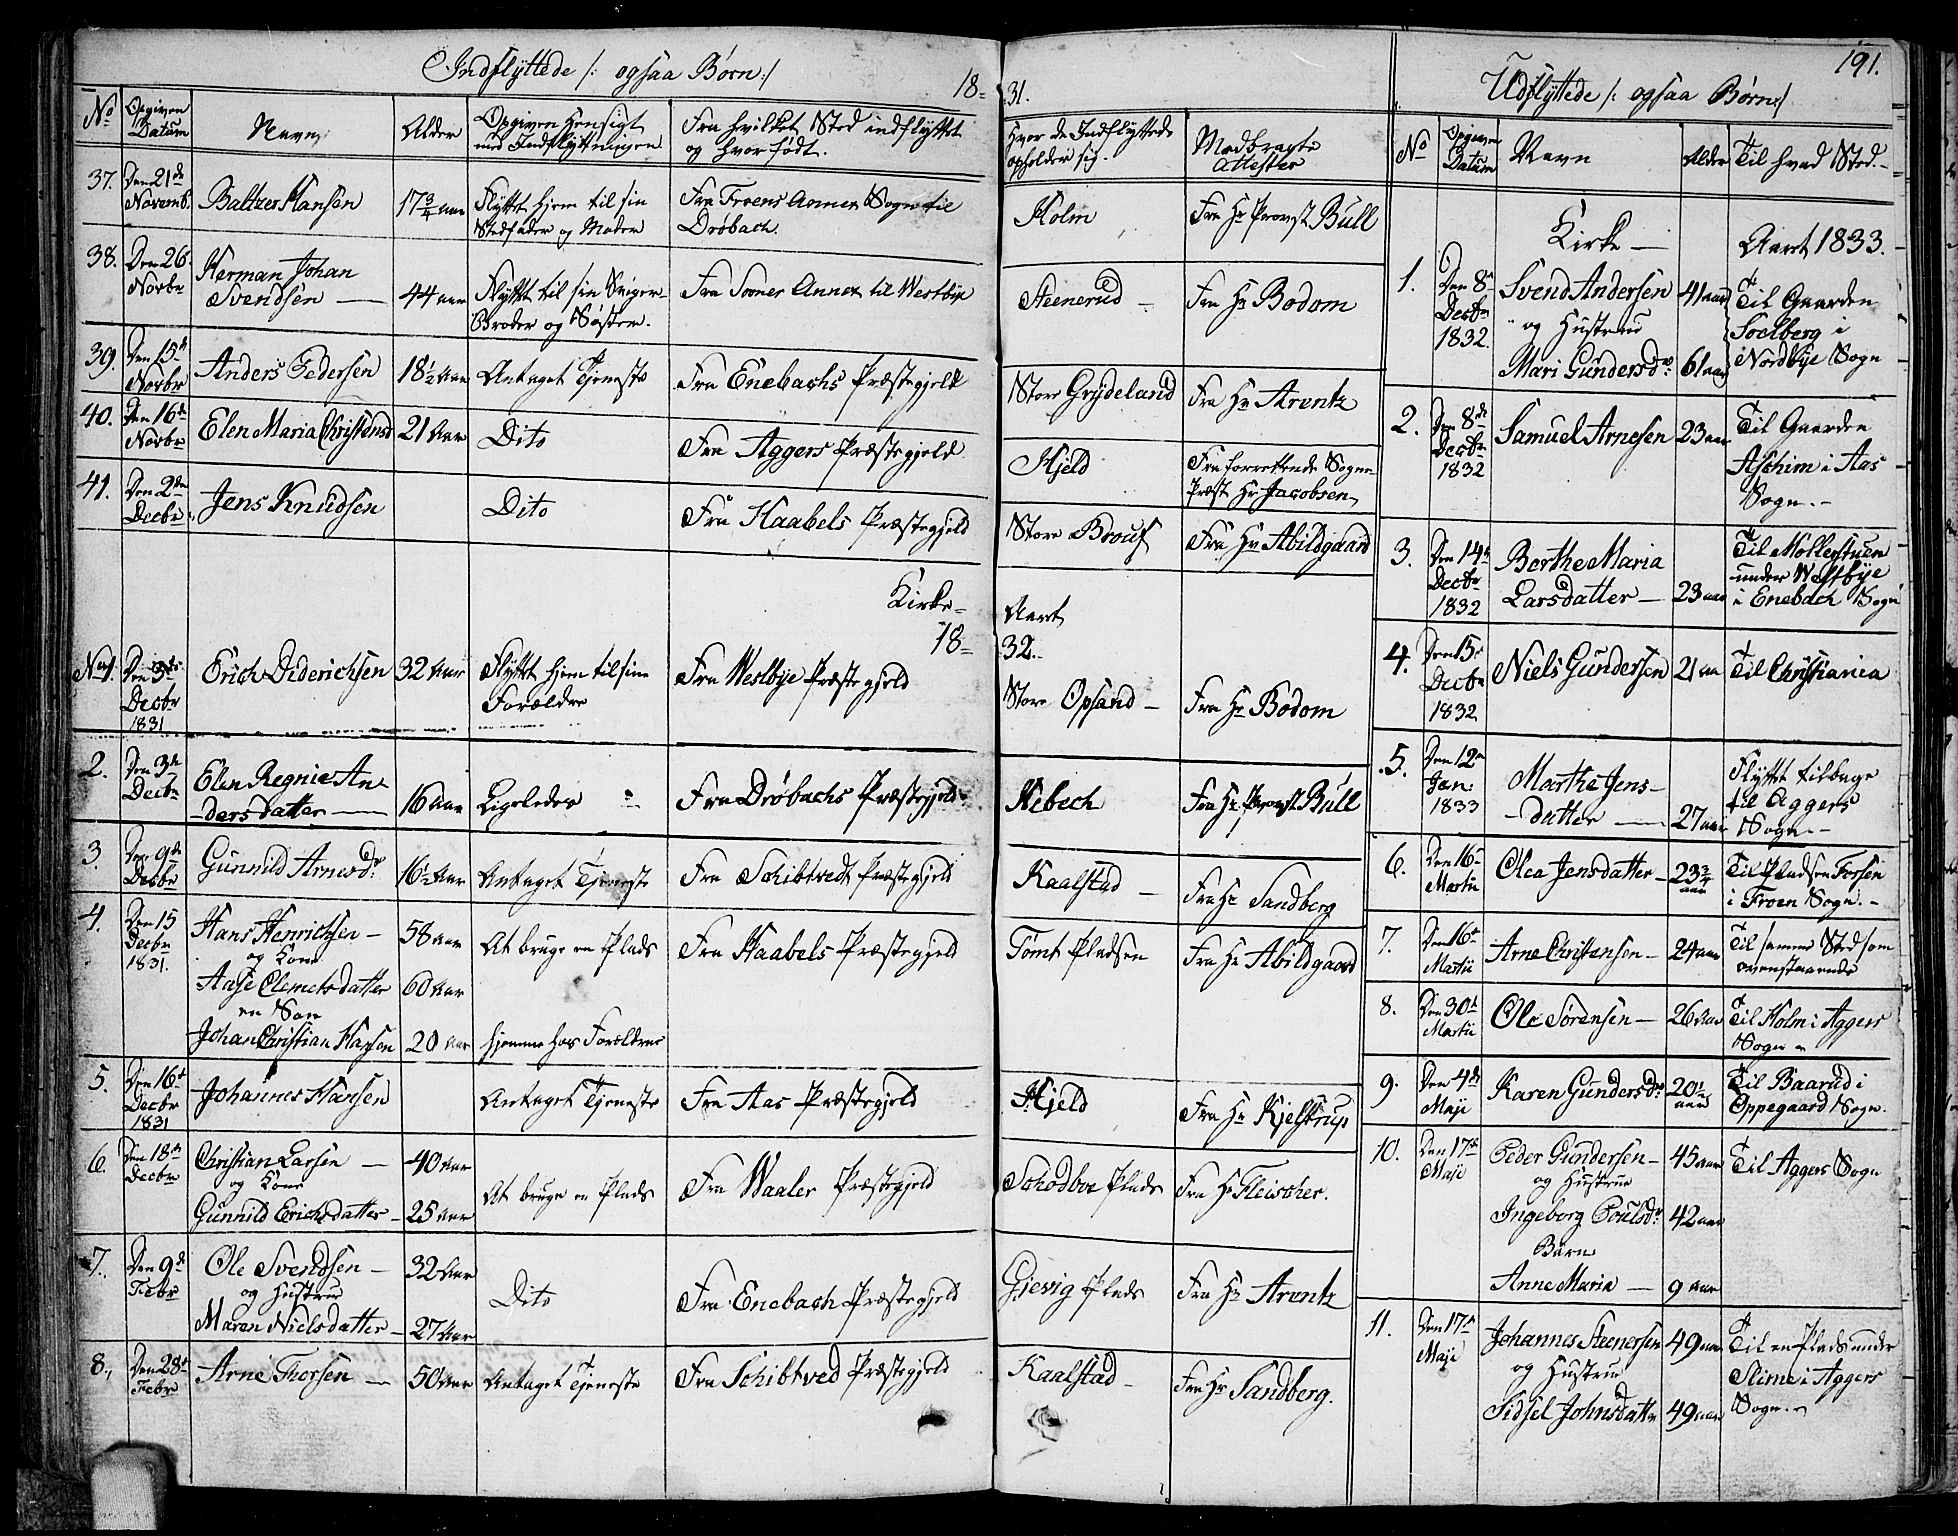 Indflyttede /: ogsaa Børn :/ 18-31.
No
Opgiven Datum
Navn
Alder
Opgiven Hensigt med Indflytningen
Fra hvilket Sted indflyttet og hvor født.
Hvor de Indflyttede opholder sig.
Medbragte Attester
37. Den 21de Novemb. Baltzer Hansen 17 3/4 Aar Flyttet hjem til sin Stedfader og Moder Fra Froens Annex Sogn til Drøbach. Holm Fra Hr Provst Bull
38. Den 26. Novbr Herman Johan Svendsen — 44 aar Flyttet til sin Sviger-Broder og Søster. Fra Soner Annex til Westbye Steenerud — Fra Hr Bodom
39. Den 15de Novbr Anders Pedersen 18 1/2 Aar Antaget Tjeneste Fra Enebachs Præstegjeld Store Grydeland Fra Hr Arentz
40. Den 16de Novbr Elen Maria Christensd 21 Aar Dito Fra Aggers Præstegjeld. Hjeld Fra forrettende Sogne-Præst Hr Jacobsen
41. Den 2den Decbr. Jens Knudsen Dito Fra Haabels Præstegjeld Store Brouf Fra Hr Abildgaard
Kirke- Aaret
18- 32.
No 1. Den 3de Decbr 1831 Erich Diderichsen 32 Aar Flyttet hjem til sine Forældre Fra Westbye Præstegjeld Store Opsand — Fra Hr Bodom
2. Den 3de Decbr Elen Regnie Andersdatter — 16 Aar Ligeledes Fra Drøbachs Præstegjeld Nebech Fra Hr Provst Bull
3. Den 9de Decbr Gunnild Arnesdr 16 1/2 Aar Antaget Tjeneste Fra Schibtvedt Præstegjeld Kaalstad — Fra Hr Sandberg
4. Den 15 Decbr 1831. Hans Henrichsen — 58 aar At bruge en Plads Fra Haabels Præstegjeld Tomt Pladsen Fra Hr Abildgaard
og Kone
Aase Clemetsdatter 60 Aar
en Søn
Johan Christian Hansen 20 Aar hjemme hos Forældrene
5. Den 16de Decbr 1831 Johannes Hansen Antaget Tjeneste Fra Aas Præstegjeld Hjeld Fra Hr Kjelstrup
6. Den 18de Decbr Christian Larsen — 40 Aar
og Kone At bruge en Plads Fra Waaler Præstegjeld Schodboe Plads Fra Hr Fleischer.
Gunnild Erichsdatter — 25 Aar
7. Den 9de Febr Ole Svendsen — 32 Aar
og Hustrue Dito Fra Enebach Præstegjeld Gjevig Plads Fra Hr Arentz
Maren Nielsdatter — 27 Aar
8. Den 28de Febr Arne Thorsen — 50 Aar Antaget Tjeneste Fra Schibtved Præstegjeld Kaalstad — Fra Hr Sandberg.
191.
Udflyttede /: ogsaa Børn :/
No
Opgiven Datum
Navn
Alder
Til hvad Sted.
Kirke — Aaret 1833.
1. Den 8de Decbr 1832. Svend Andersen 41 aar Til Gaarden Soelberg i Nordbye Sogn
og Hustrue
Mari Gundersdr. 61 aar
2. Den 8de Decbr 1832 Samuel Arnesen 23 aar Til Gaarden Aschim i Aas Sogn. —
3. Den 14de Decbr 1832 Berthe Maria Larsdatter — 23 aar Til Møllerstuen under Westbye i Enebach Sogn
4. Den 15de Decbr 1832 Niels Gundersen 21 aa Til Christiania
5. Den 12te Jan: 1833 Marthe Jens-datter — 27 aar Flyttet tilbage til Aggers Sogn. —
6. Den 16de Martii Olea Jensdatter — 23 3/4 aar Til Pladsen Torsen i Froen Sogn. —
7. Den 16de Martii Arne Christensen — 24 aar Til samme Sted som ovenstaaende
8. Den 30te Martii Ole Sörensen — 26 Aar Til Holm i Aggers Sogn —
9. Den 4de Maji Karen Gundersdr 20 1/2 aar Til Baarud i Oppegaard Sogn.
10. Den 17de Maji Peder Gundersen — 45 aar Til Aggers Sogn
og Hustrue
Ingeborg Poulsdr 42 aar
Barn
Anne Maria — 9 aar
11. Den 17de Maji Johannes Steenersen 49 aar Til en Plads under Slime i Aggers Sogn. —
og Hustrue
Sidsel Johnsdatter 49 aar